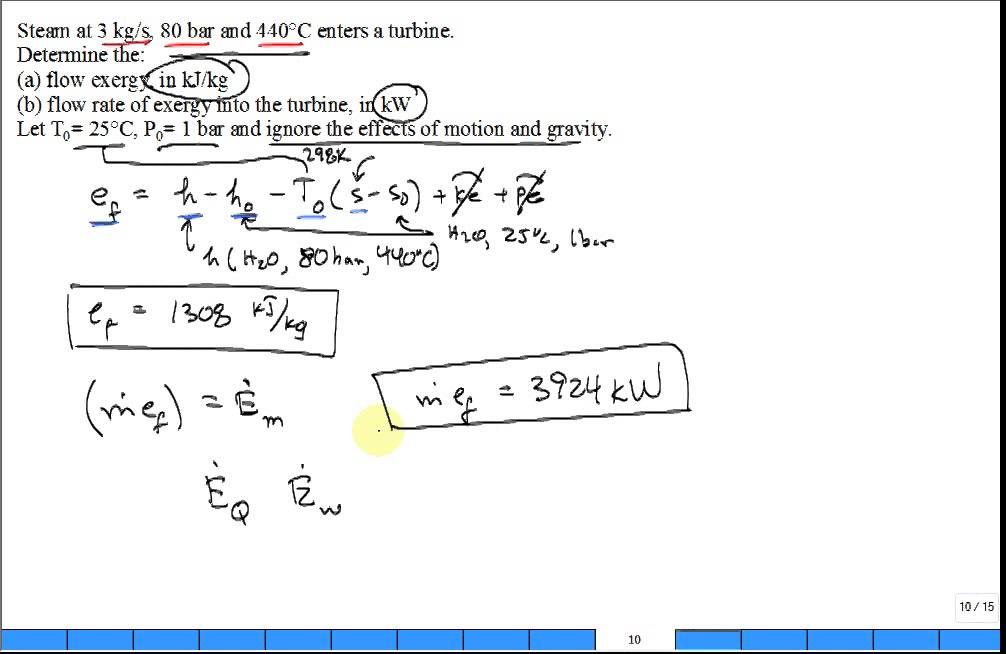 Steam at 3 kg/s, 80 bar and 440°C enters a turbine.
Determine the:
(a) flow exergy, in kJ/kg
(b) flow rate of exergy into the turbine, in kW
Let T₀= 25°C, P₀= 1 bar and ignore the effects of motion and gravity.
298K
e_f = h - h₀ - T₀(s - s₀) + ke + pe
H₂O, 25°C, 1bar
h(H₂O, 80bar, 440°C)
e_f = 1308 kJ/kg
ṁ e_f = 3924 kW
(ṁ e_f) = Ė_m
Ė_Q Ė_w
10 / 15
10